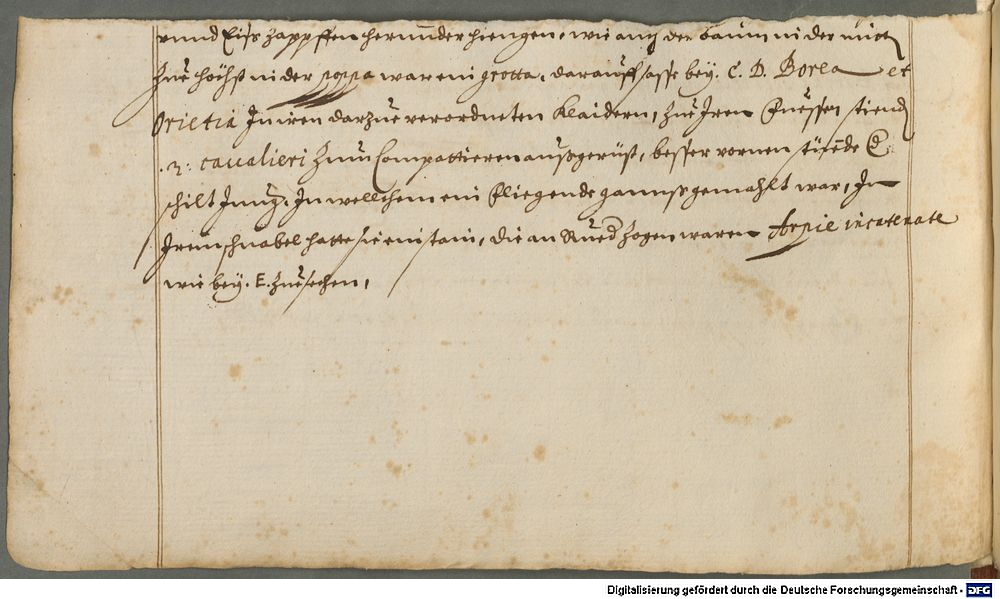 vnnd Eiss zappffen herunnder hiengen, wie auch der baum in der mitt,
Zue höchst in der poppa war ein grotta, darauff sasse bey. C. D. Borea et
Orietia In iren darzue verordneten Klaidern, Zue Iren Fuessen stiend
.2. caualieri Zum Compattieren aussgerüst, besser vornen stüende
schilt Jung, In wellchem ein fliegende ganns gemahlt war, In
Irem schnabel hatte sie ein stain, die an Rued Zogen waren Arpie incatenate
wie bey. E. Zue sechen,
Digitalisierung gefördert durch die Deutsche Forschungsgemeinschaft - DFG